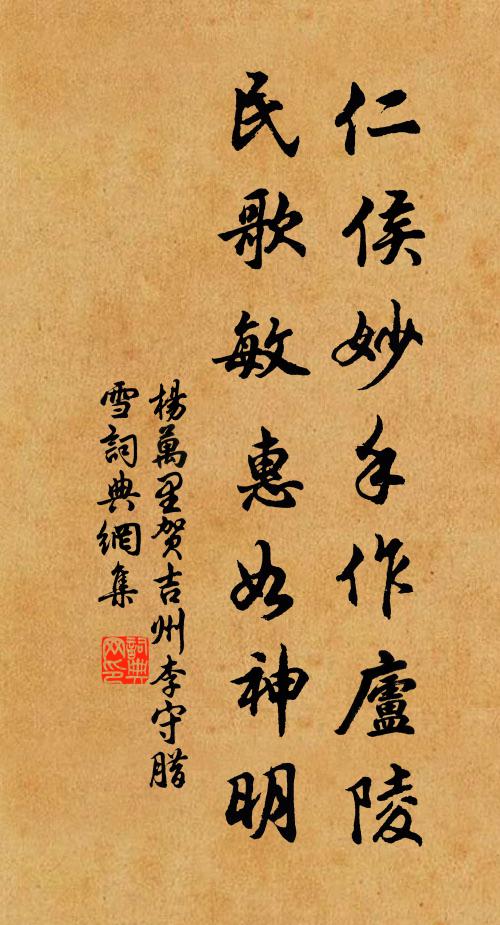 仁侯妙手作廬陵
民歌敏惠如神明
楊萬里賀吉州李守腊
雪詞典網集
詞典網印